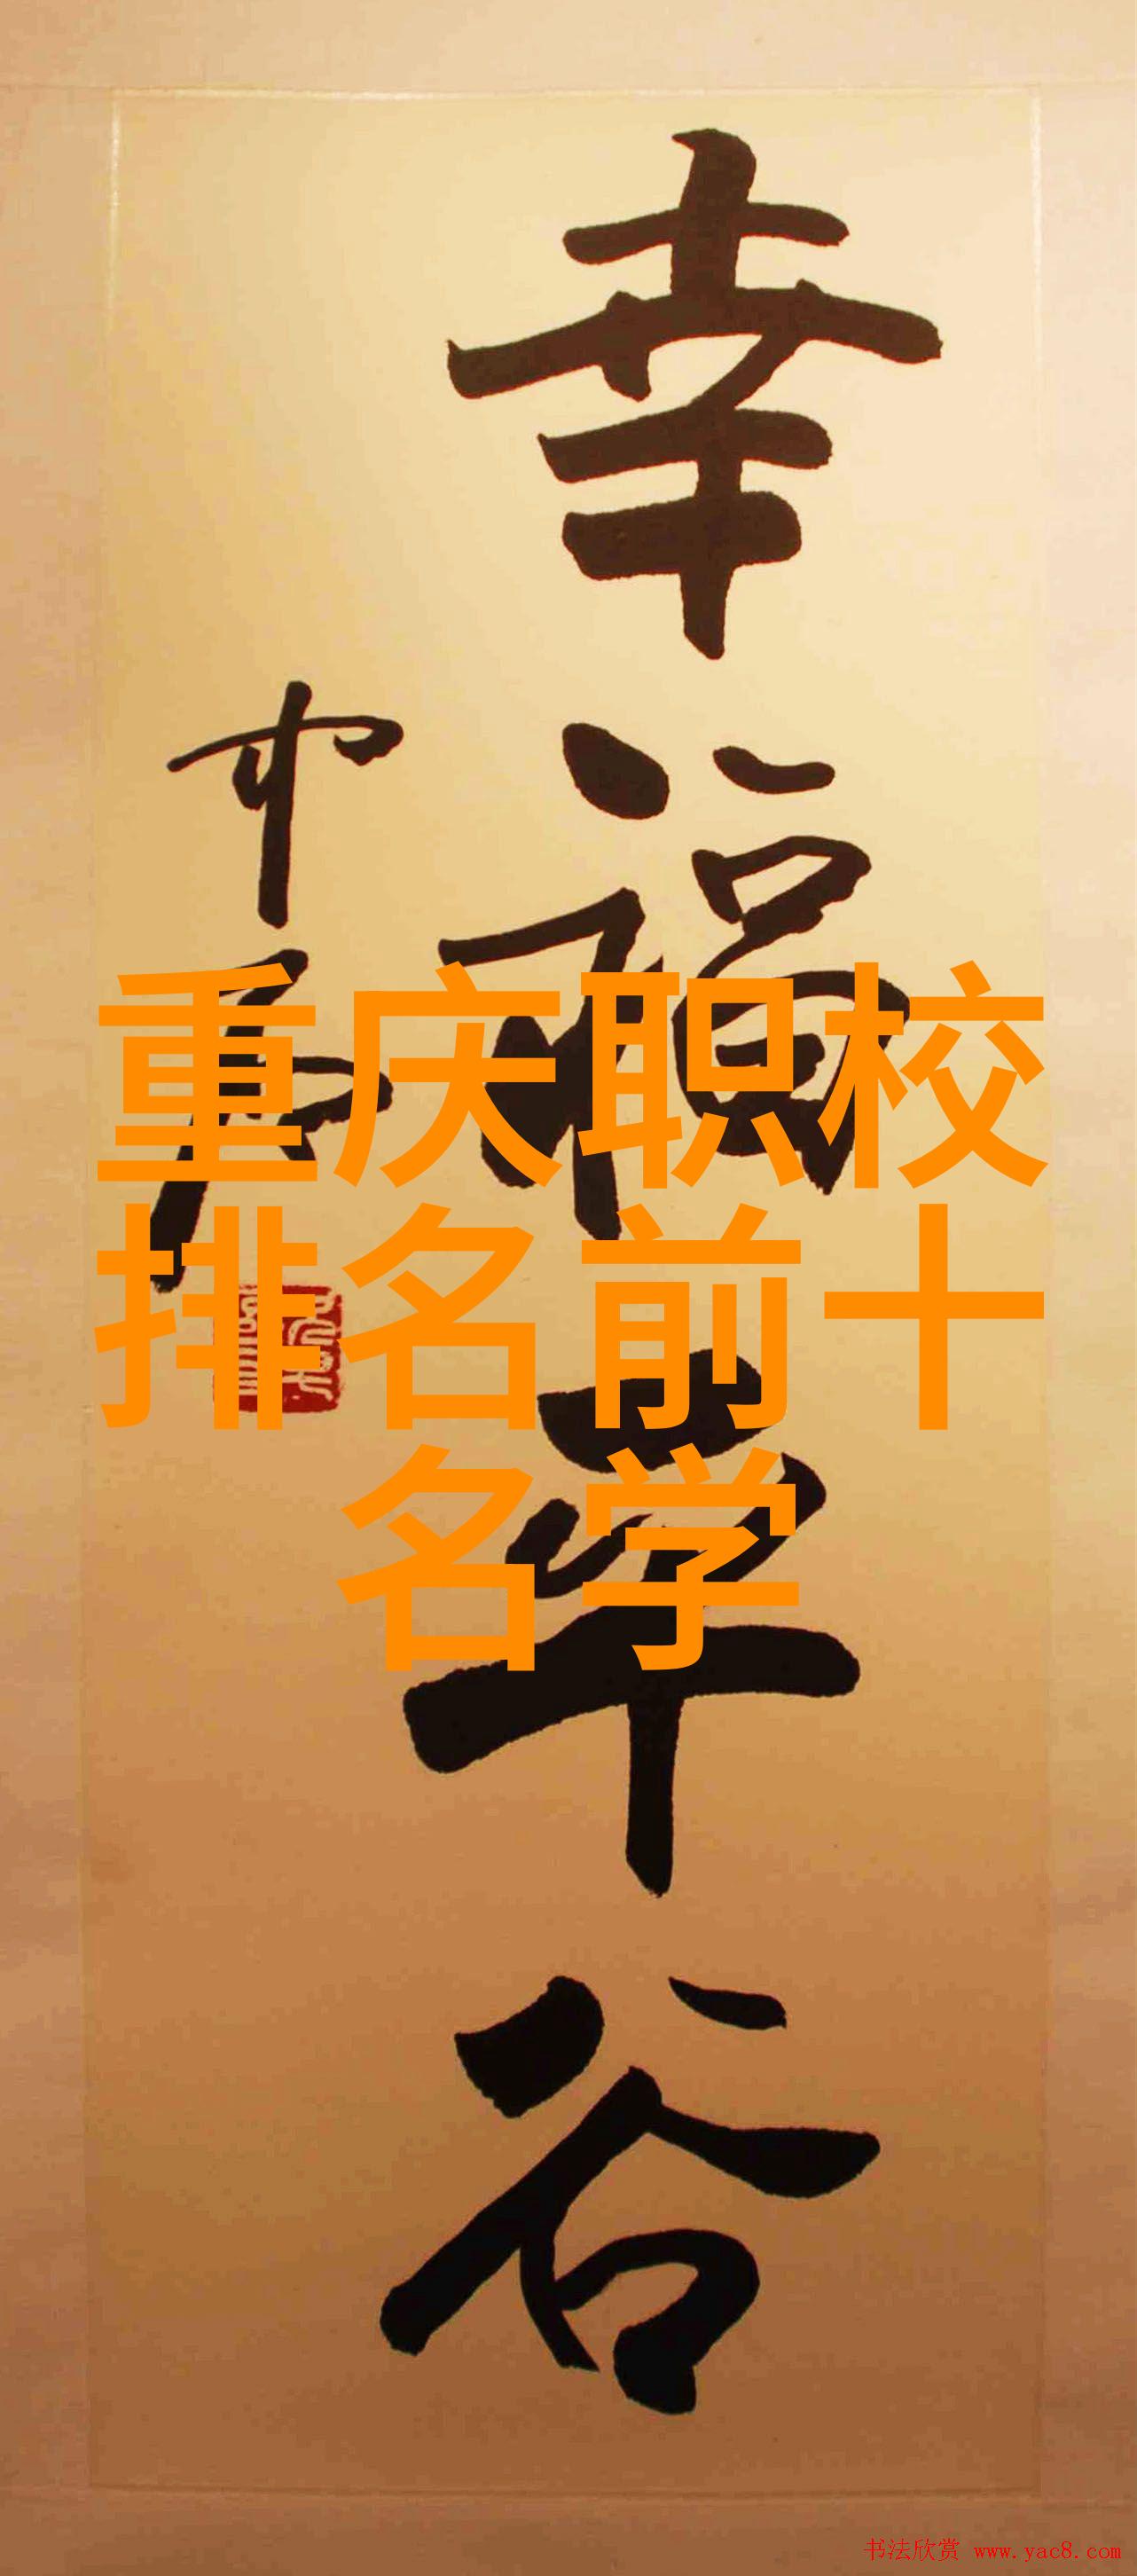 幸福
谷
中石
重庆职校
排名前十
名学
书法欣赏 www.yac8.com